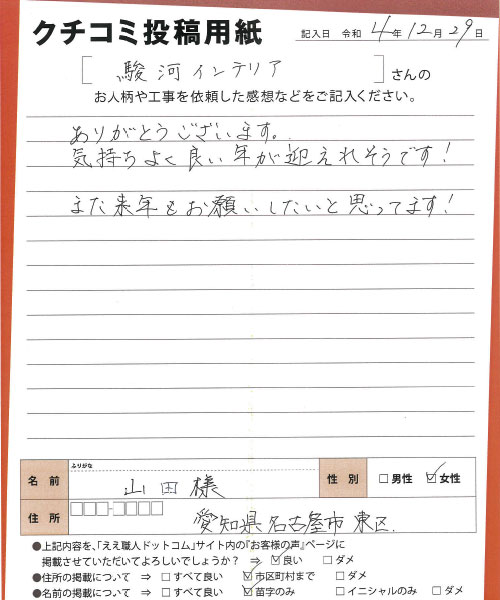 クチコミ投稿用紙
記入日 令和 4年12月29日
[駿河インテリア]さんの
お人柄や工事を依頼した感想などをご記入ください。
ありがとうございます。
気持ちよく良い年が迎えれそうです!
また来年もお願いしたいと思ってます!
ふりがな
名前 山田様 性別 □男性 ☑女性
住所 愛知県名古屋市東区.
●上記内容を、「ええ職人ドットコム」サイト内の『お客様の声』ページに
掲載させていただいてよろしいでしょうか? ⇒ ☑良い □ダメ
●住所の掲載について ⇒ □すべて良い ☑市区町村まで □ダメ
●名前の掲載について ⇒ □すべて良い ☑苗字のみ □イニシャルのみ □ダメ